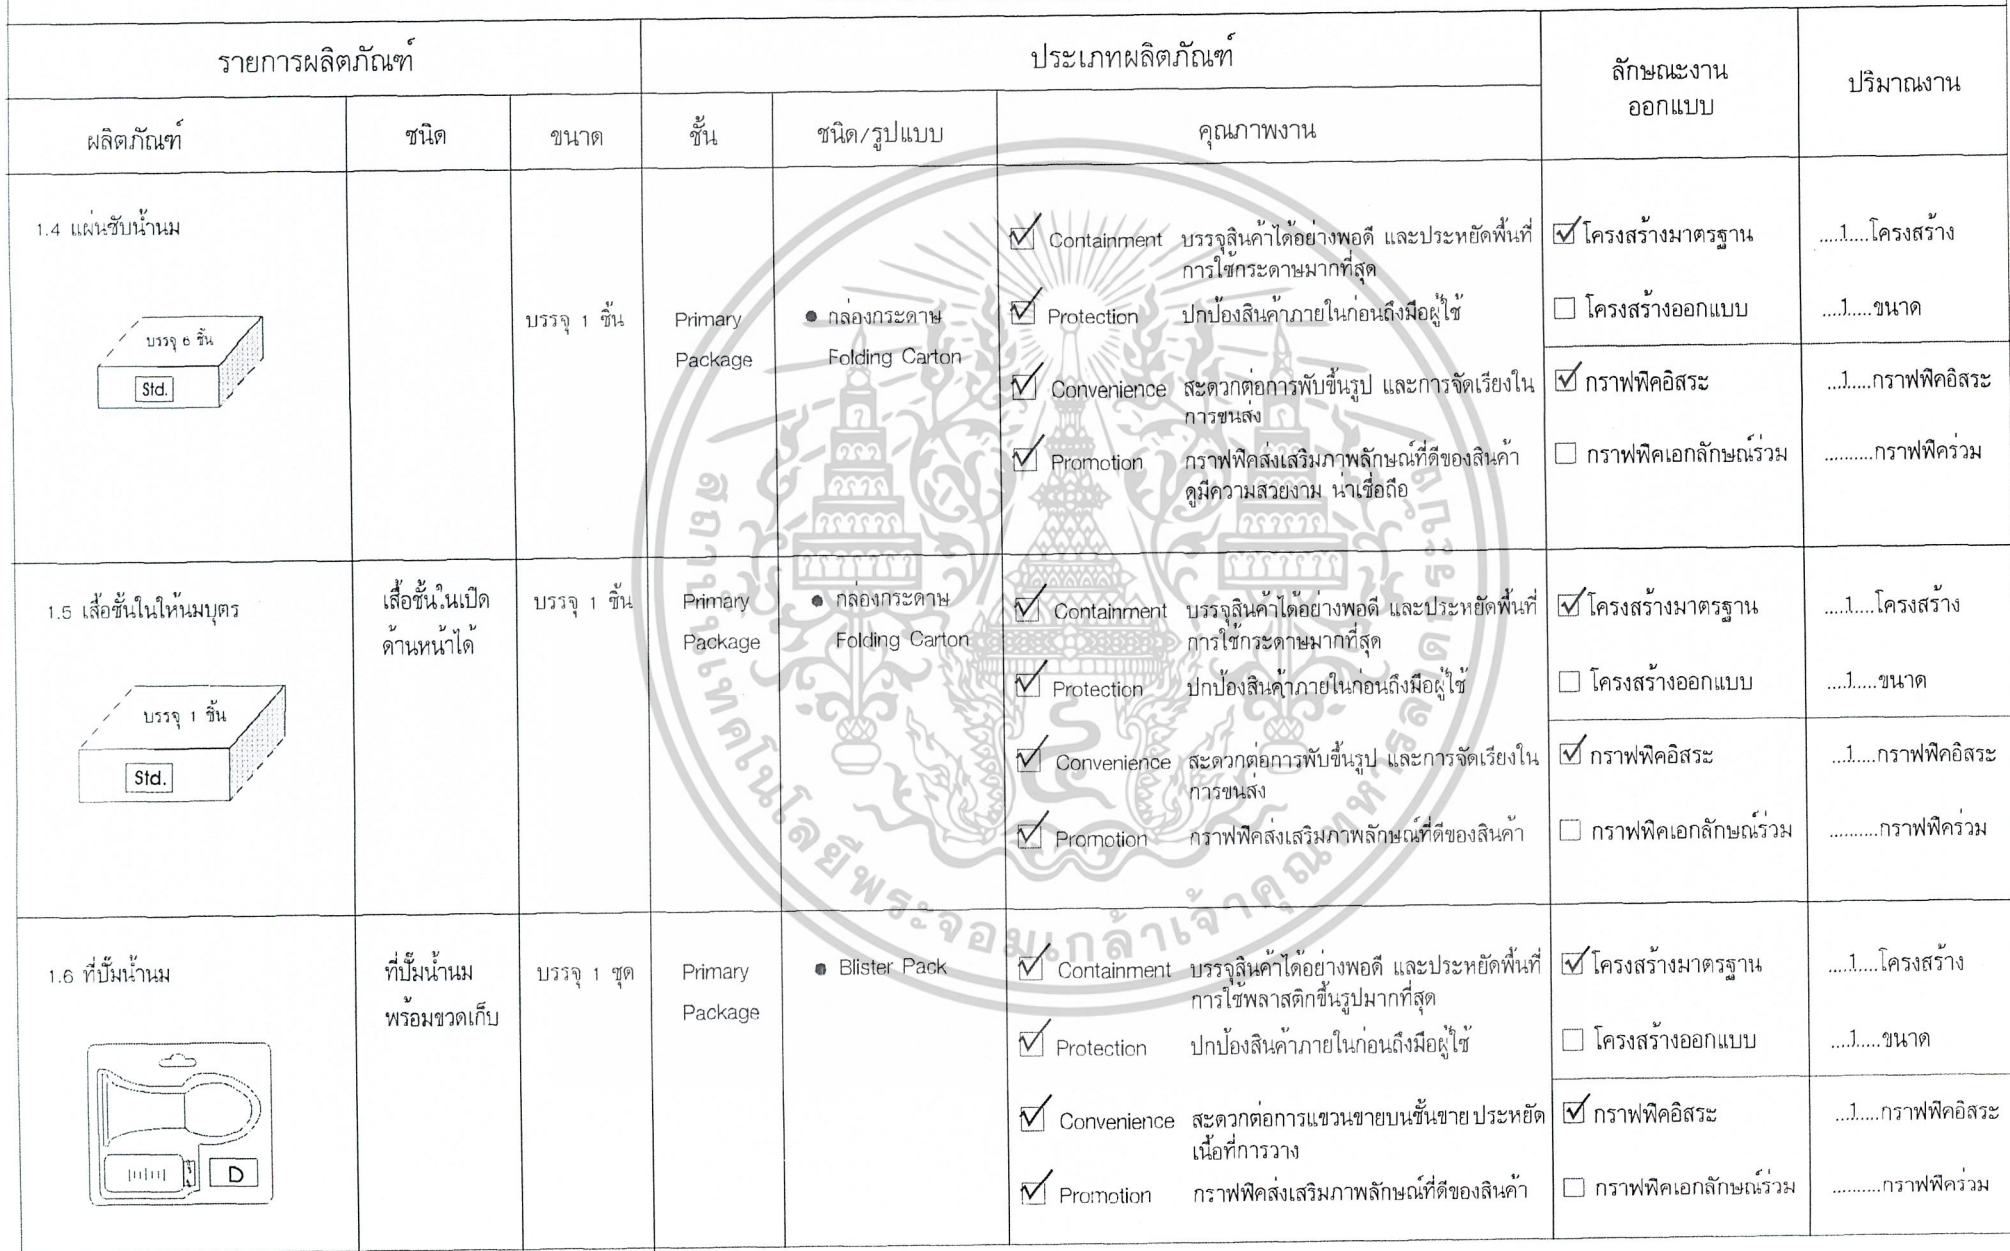 รายการผลิตภัณฑ์ ประเภทผลิตภัณฑ์ ลักษณะงาน ปริมาณงาน
ออกแบบ
ผลิตภัณฑ์ ชนิด ขนาด ชั้น ชนิด/รูปแบบ คุณภาพงาน
1.4 แผ่นซับน้ำนม
บรรจุ 6 ชิ้น
Std.
บรรจุ 1 ชิ้น
Primary
Package
● กล่องกระดาษ
Folding Carton
☑ Containment บรรจุสินค้าได้อย่างพอดี และประหยัดพื้นที่
การใช้กระดาษมากที่สุด
☑ Protection ปกป้องสินค้าภายในก่อนถึงมือผู้ใช้
☑ Convenience สะดวกต่อการพับขึ้นรูป และการจัดเรียงใน
การขนส่ง
☑ Promotion กราฟฟิคส่งเสริมภาพลักษณ์ที่ดีของสินค้า
ดูมีความสวยงาม น่าเชื่อถือ
☑ โครงสร้างมาตรฐาน .....1....โครงสร้าง
☐ โครงสร้างออกแบบ ....1.....ขนาด
☑ กราฟฟิคอิสระ ...1.....กราฟฟิคอิสระ
☐ กราฟฟิคเอกลักษณ์ร่วม ..........กราฟฟิคร่วม
1.5 เสื้อชั้นในให้นมบุตร
บรรจุ 1 ชิ้น
Std.
เสื้อชั้นในเปิด
ด้านหน้าได้
บรรจุ 1 ชิ้น
Primary
Package
● กล่องกระดาษ
Folding Carton
☑ Containment บรรจุสินค้าได้อย่างพอดี และประหยัดพื้นที่
การใช้กระดาษมากที่สุด
☑ Protection ปกป้องสินค้าภายในก่อนถึงมือผู้ใช้
☑ Convenience สะดวกต่อการพับขึ้นรูป และการจัดเรียงใน
การขนส่ง
☑ Promotion กราฟฟิคส่งเสริมภาพลักษณ์ที่ดีของสินค้า
☑ โครงสร้างมาตรฐาน .....1....โครงสร้าง
☐ โครงสร้างออกแบบ ....1.....ขนาด
☑ กราฟฟิคอิสระ ...1.....กราฟฟิคอิสระ
☐ กราฟฟิคเอกลักษณ์ร่วม ..........กราฟฟิคร่วม
1.6 ที่ปั๊มน้ำนม
D
ที่ปั๊มน้ำนม
พร้อมขวดเก็บ
บรรจุ 1 ชุด
Primary
Package
● Blister Pack
☑ Containment บรรจุสินค้าได้อย่างพอดี และประหยัดพื้นที่
การใช้พลาสติกขึ้นรูปมากที่สุด
☑ Protection ปกป้องสินค้าภายในก่อนถึงมือผู้ใช้
☑ Convenience สะดวกต่อการแขวนขายบนชั้นขาย ประหยัด
เนื้อที่การวาง
☑ Promotion กราฟฟิคส่งเสริมภาพลักษณ์ที่ดีของสินค้า
☑ โครงสร้างมาตรฐาน .....1....โครงสร้าง
☐ โครงสร้างออกแบบ ....1.....ขนาด
☑ กราฟฟิคอิสระ ...1.....กราฟฟิคอิสระ
☐ กราฟฟิคเอกลักษณ์ร่วม ..........กราฟฟิคร่วม
สถาบันเทคโนโลยีพระจอมเกล้าเจ้าคุณทหารลาดกระบัง